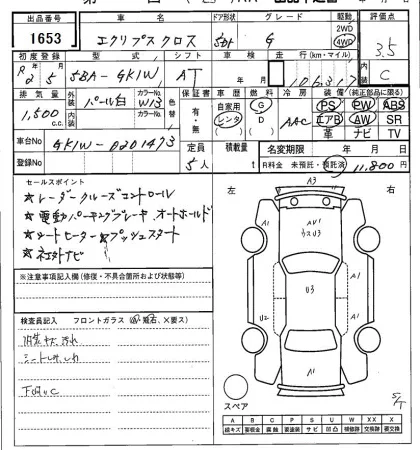 出品番号 車名 ドア形状 グレード 駆動 評価点
1653 エクリプスクロス 5D G 2WD 4WD 3.5
初度登録 型式 シフト 車検 走行 (km・マイル) 内装
R2 5 5BA-GK1W AT C
排気量 外装 カラーNo. 色替 保証書 車歴 燃料 冷房 装備 (純正部品に限る)
1,500 c.c. パール白 W13 有・無 自家用 レンタ G D AAC PS PW ABS
エアB AW SR
革 ナビ TV
車台No GK1W-0201473 定員 積載量 名変期限 年 月 日
登録No 5人 t R料金 未預託・預託済 11,800円
セールスポイント
★レーダークルーズコントロール
★電動パーキングブレーキ オートホールド
★シートヒーター ★プッシュスタート
★社外ナビ
※注意事項記入欄 (修復・不具合箇所および状態等)
検査員記入 フロントガラス
内装キズ汚れ
シートしみ、しわ
下回りC
左 右
A3
A1 AV1 A1
U3
U2 A1
A1
スペア
A B C P S U W X XX
線キズ 要板金 腐蝕 要塗装 サビ 凹凸 補修跡 要交換 交換跡